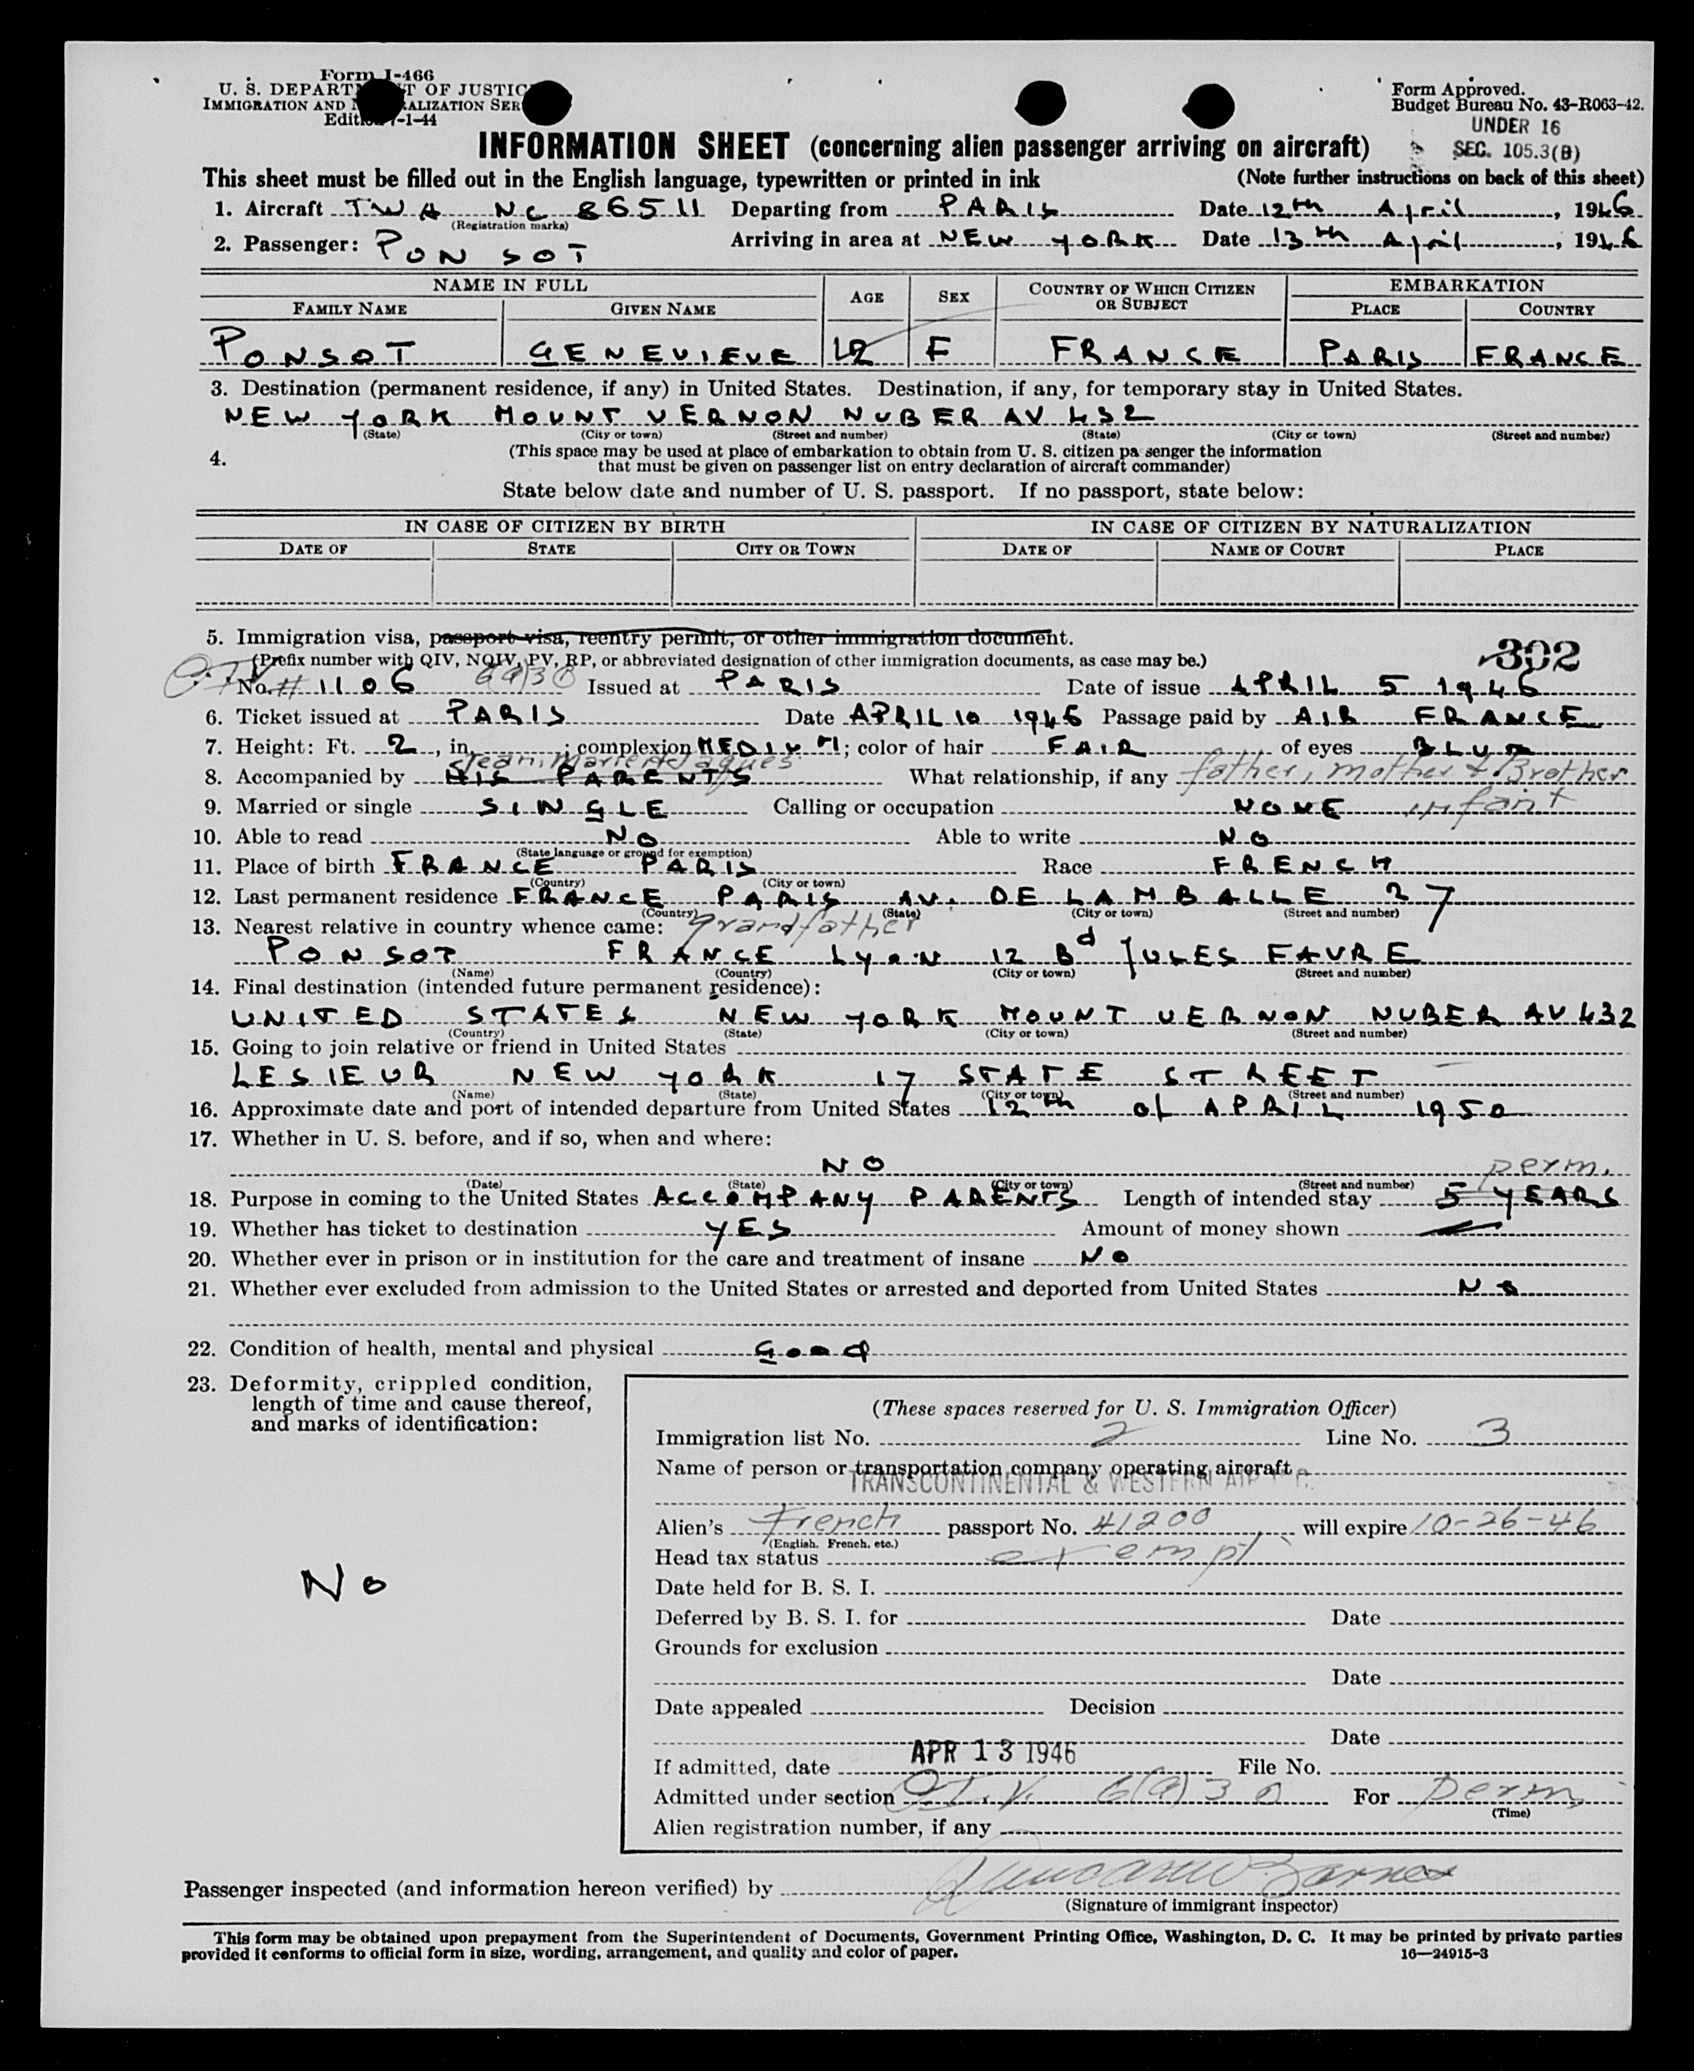 Form I-466
U. S. DEPARTMENT OF JUSTICE
IMMIGRATION AND NATURALIZATION SER
Edition 7-1-44
Form Approved.
Budget Bureau No. 43-R063-42.
UNDER 16
SEC. 105.3(B)
INFORMATION SHEET (concerning alien passenger arriving on aircraft)
This sheet must be filled out in the English language, typewritten or printed in ink (Note further instructions on back of this sheet)
1. Aircraft TWA NC 86511 Departing from PARIS Date 12th April, 1946
(Registration marks)
2. Passenger: PONSOT Arriving in area at NEW YORK Date 13th April, 1946
NAME IN FULL AGE SEX COUNTRY OF WHICH CITIZEN OR SUBJECT EMBARKATION
FAMILY NAME GIVEN NAME PLACE COUNTRY
PONSOT GENEVIEVE F FRANCE PARIS FRANCE
3. Destination (permanent residence, if any) in United States. Destination, if any, for temporary stay in United States.
NEW YORK MOUNT VERNON NUBER AV 432
(State) (City or town) (Street and number) (State) (City or town) (Street and number)
4. (This space may be used at place of embarkation to obtain from U. S. citizen pa senger the information
that must be given on passenger list on entry declaration of aircraft commander)
State below date and number of U. S. passport. If no passport, state below:
IN CASE OF CITIZEN BY BIRTH IN CASE OF CITIZEN BY NATURALIZATION
DATE OF STATE CITY OR TOWN DATE OF NAME OF COURT PLACE
5. Immigration visa, passport visa, reentry permit, or other immigration document.
(Prefix number with QIV, NQIV, PV, RP, or abbreviated designation of other immigration documents, as case may be.) 302
No. # 1106 6(a)3 Issued at PARIS Date of issue APRIL 5 1946
6. Ticket issued at PARIS Date APRIL 10 1946 Passage paid by AIR FRANCE
7. Height: Ft. 2, in. ; complexion MEDIUM; color of hair FAIR of eyes BLUE
Jean, Marie & Jaques
8. Accompanied by HIS PARENTS What relationship, if any father, mother & Brother
9. Married or single SINGLE Calling or occupation NONE infant
10. Able to read NO Able to write NO
(State language or ground for exemption)
11. Place of birth FRANCE PARIS Race FRENCH
(Country) (City or town)
12. Last permanent residence FRANCE PARIS AV. DE LAMBALLE 27
(Country) (State) (City or town) (Street and number)
13. Nearest relative in country whence came: grandfather
PONSOT FRANCE LYON 12 Bd JULES FAVRE
(Name) (Country) (City or town) (Street and number)
14. Final destination (intended future permanent residence):
UNITED STATES NEW YORK MOUNT VERNON NUBER AV 432
(Country) (State) (City or town) (Street and number)
15. Going to join relative or friend in United States
LESIEUR NEW YORK 17 STATE STREET
(Name) (State) (City or town) (Street and number)
16. Approximate date and port of intended departure from United States 12th of APRIL 1950
17. Whether in U. S. before, and if so, when and where:
NO perm.
(Date) (State) (City or town) (Street and number)
18. Purpose in coming to the United States ACCOMPANY PARENTS Length of intended stay 5 YEARS
19. Whether has ticket to destination YES Amount of money shown
20. Whether ever in prison or in institution for the care and treatment of insane NO
21. Whether ever excluded from admission to the United States or arrested and deported from United States NO
22. Condition of health, mental and physical Good
23. Deformity, crippled condition,
length of time and cause thereof,
and marks of identification:
No
(These spaces reserved for U. S. Immigration Officer)
Immigration list No. 2 Line No. 3
Name of person or transportation company operating aircraft
TRANSCONTINENTAL & WESTERN AIR
Alien's French passport No. 41200, will expire 10-26-46
(English, French, etc.)
Head tax status exempt
Date held for B. S. I.
Deferred by B. S. I. for Date
Grounds for exclusion
Date
Date appealed Decision
Date
If admitted, date APR 13 1946 File No.
Admitted under section Q.I.V. 6(a)3 For perm.
(Time)
Alien registration number, if any
Passenger inspected (and information hereon verified) by Barnes
(Signature of immigrant inspector)
This form may be obtained upon prepayment from the Superintendent of Documents, Government Printing Office, Washington, D. C. It may be printed by private parties
provided it conforms to official form in size, wording, arrangement, and quality and color of paper. 16—24915-3